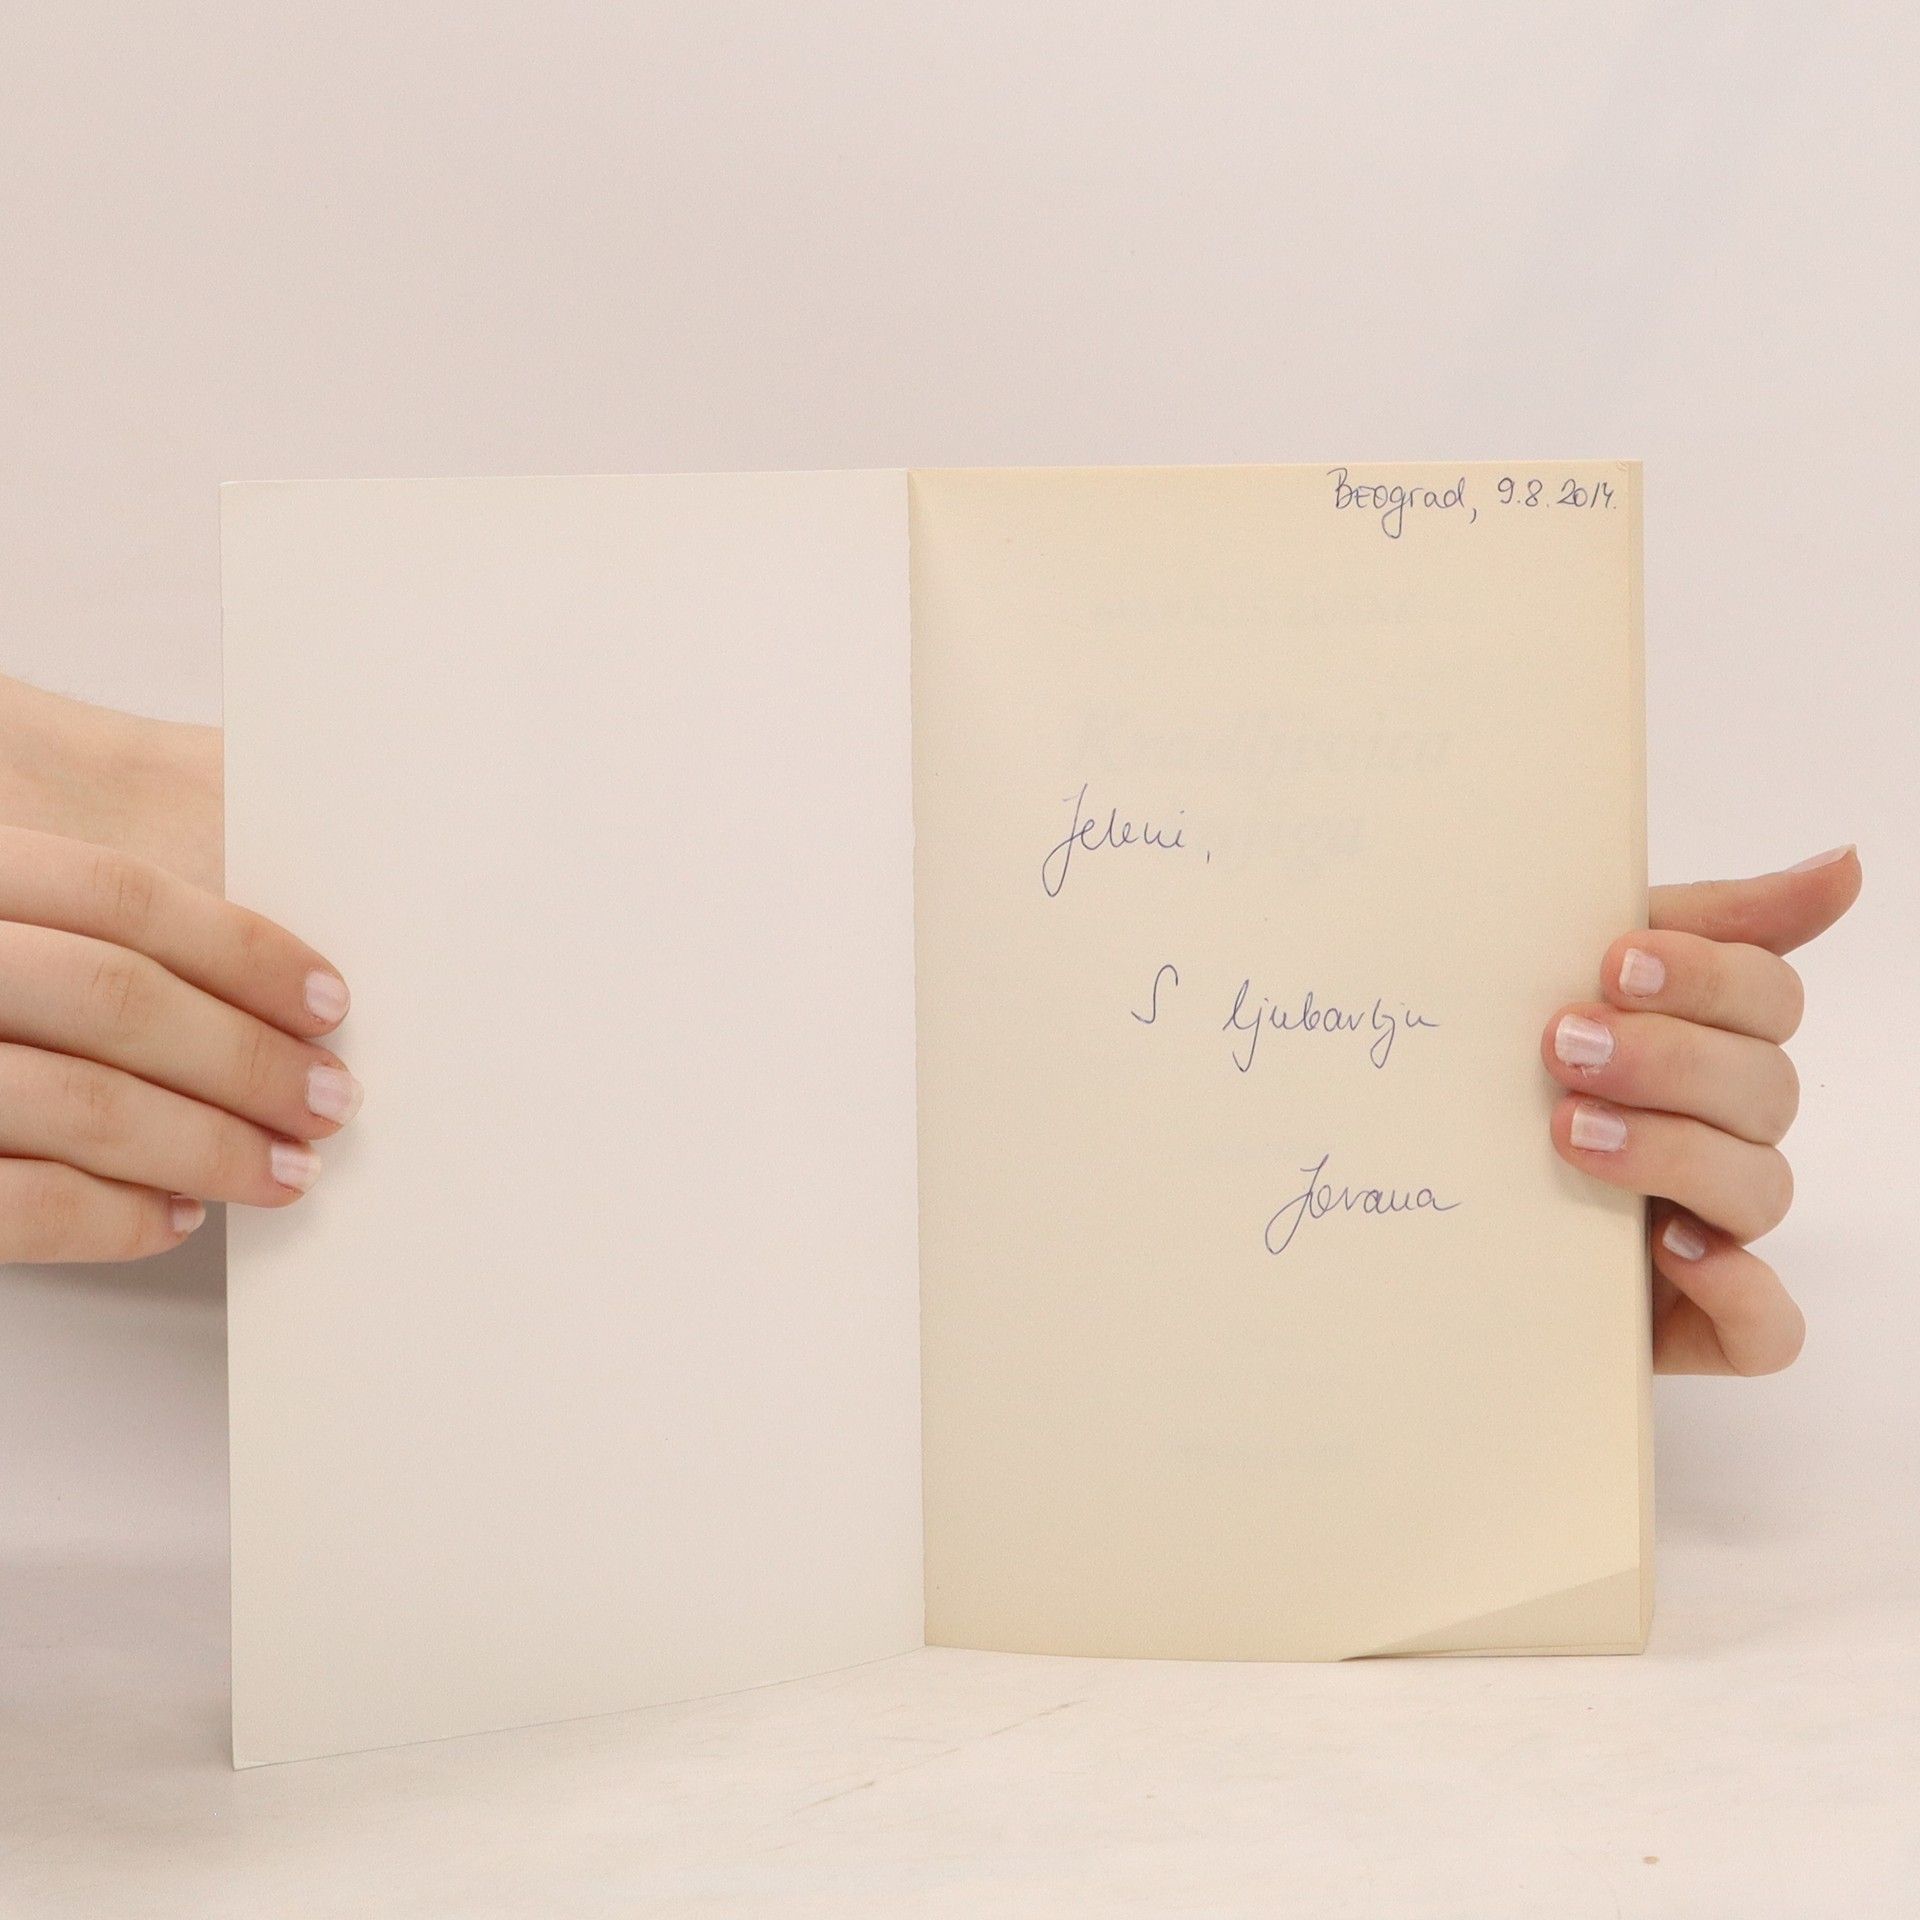 Beograd, 9.8.2014.
Jeleni,
S ljubavlju
Jovana